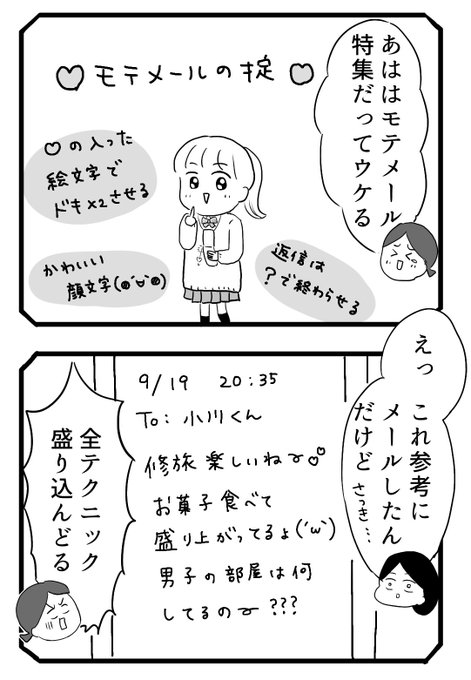 あははモテメール
特集だってウケる
♡モテメールの掟♡
♡の入った
絵文字で
ドキ×2させる
かわいい
顔文字(๑´ڡ`๑)
返信は
?で終わらせる
えっ
これ参考に
メールしたん
だけど
さっき…
9/19 20:35
To: 小川くん
修旅楽しいね〜♡♡
お菓子食べて
盛り上がってるよ(´ω`)
男子の部屋は何
してるの〜???
全テクニック
盛り込んどる